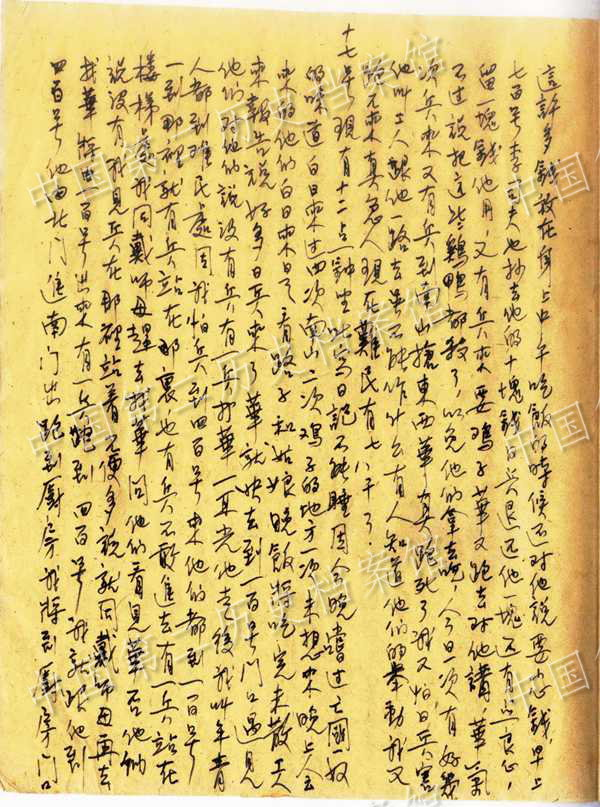 這許多錢放在身上中午吃飯的時候还对他說要心錢,早上
七百号李夫也抄去他的十塊錢日兵退还他一塊还有点良心,
留一塊錢他用,又有兵來要鸡子華又跑去对他講華氣
不过說把這些鷄鴨都殺了,以免他們拿去吃,今日一次有好幾
次兵來又有兵到南山搶東西華真跑死了我又怕日兵害
他叫工人跟他一路去虽不能作什么有人知道他们的举動我又
跑不來真急人現在難民有七八千了.
十七号現有十二点鐘坐此寫日記不能睡因今晚嚐过亡國奴
的味道白日來过四次南山二次鸡子的地方一次未想來晚上会
來的他们白日來是看路子和姑娘晚飯都吃完未散工人
來報告說好多日兵來了華就快去到一百号門口遇見
他们对他们說没有兵有一兵打華一耳光他去後我叫年青
人都到难民處因我怕兵到四百号來他们都到一百号
一到那裡就有兵站在那裏也有兵不敢進去有一兵站在
樓梯處我同戴師母趕去找華問他们看見華否他们
說没有我見兵在那裡站着不便多說就同戴師母再去
找華將 一百号出來有一兵跑到四百号我就跟他到
四百号他由北門進南門出跑到廚房我將到廚房門口
中国第二历史档案馆